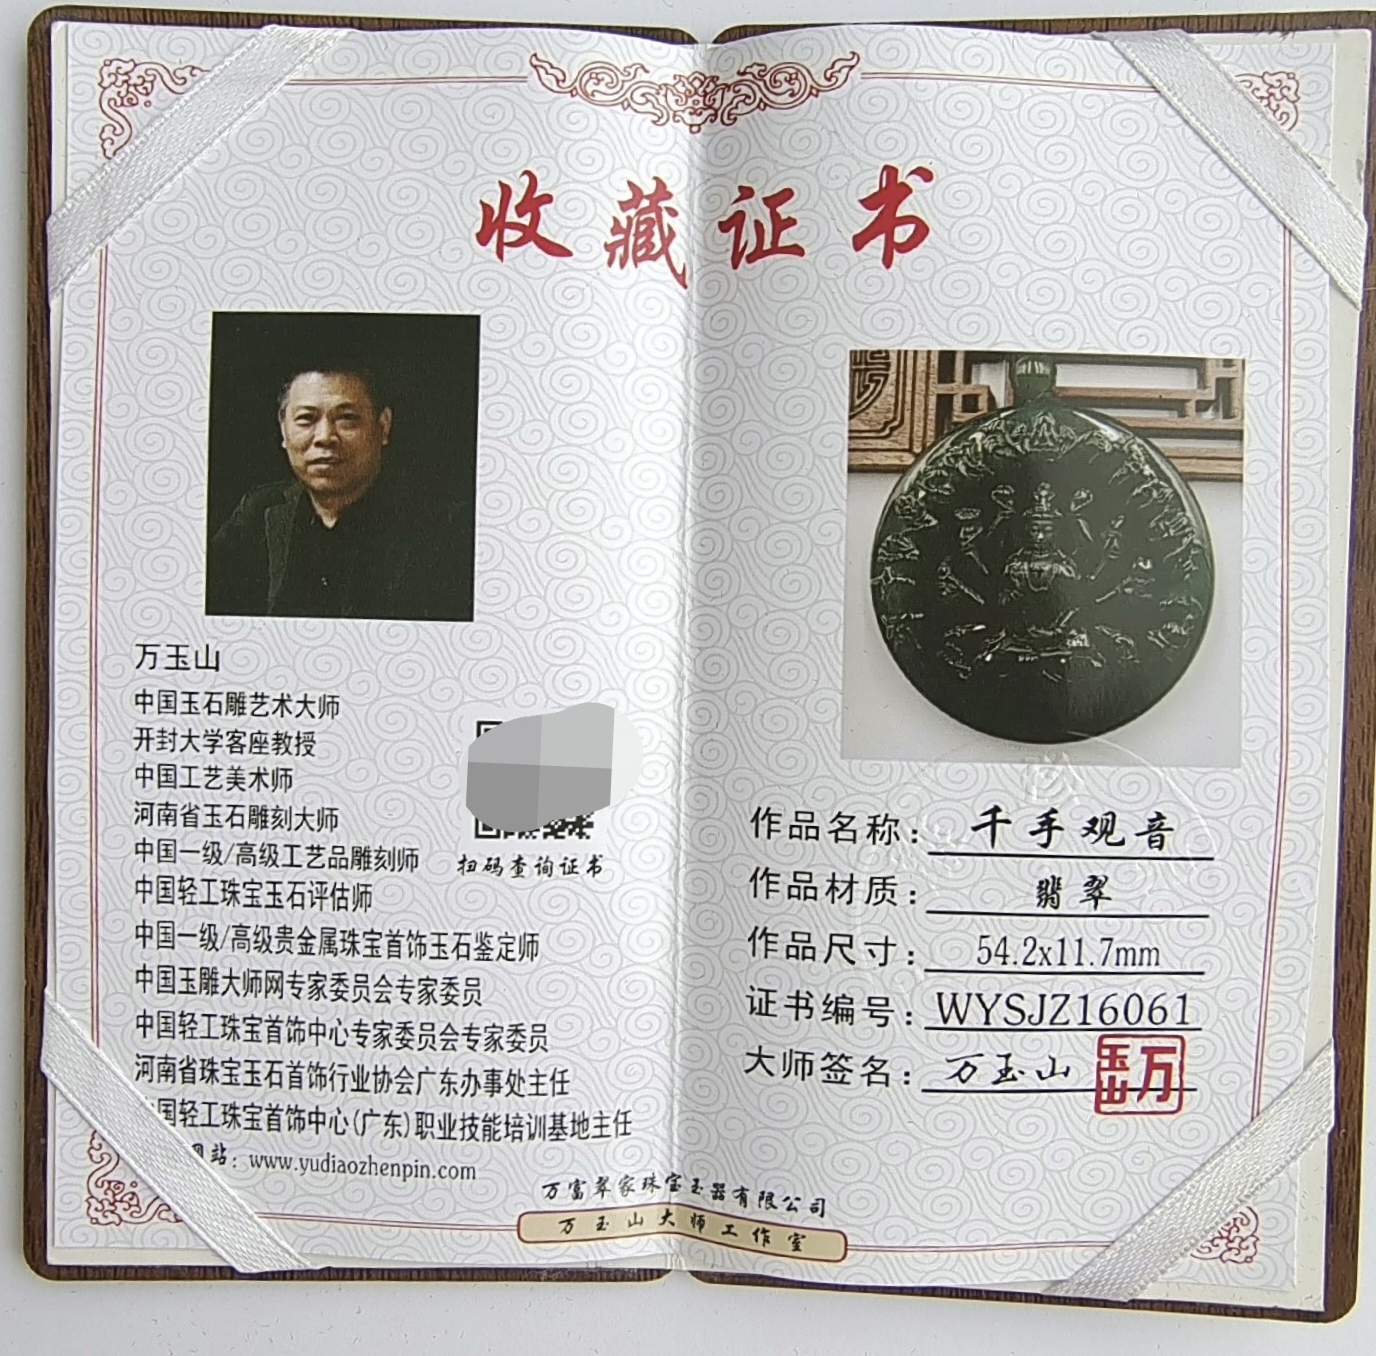 收藏证书
万玉山
中国玉石雕艺术大师
开封大学客座教授
中国工艺美术师
河南省玉石雕刻大师
中国一级/高级工艺品雕刻师
中国轻工珠宝玉石评估师
中国一级/高级贵金属珠宝首饰玉石鉴定师
中国玉雕大师网专家委员会专家委员
中国轻工珠宝首饰中心专家委员会专家委员
河南省珠宝玉石首饰行业协会广东办事处主任
国轻工珠宝首饰中心(广东)职业技能培训基地主任
网站：www.yudiaozhenpin.com
扫码查询证书
作品名称：千手观音
作品材质：翡翠
作品尺寸：54.2x11.7mm
证书编号：WYSJZ16061
大师签名：万玉山
万玉山
万富翠家珠宝玉器有限公司
万玉山大师工作室